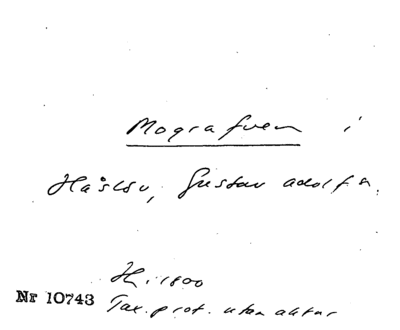 Mografven i
Håslöv, Gustav Adolf s.
H. 1800
Nr 10743 Tax. prot. utan aktnr